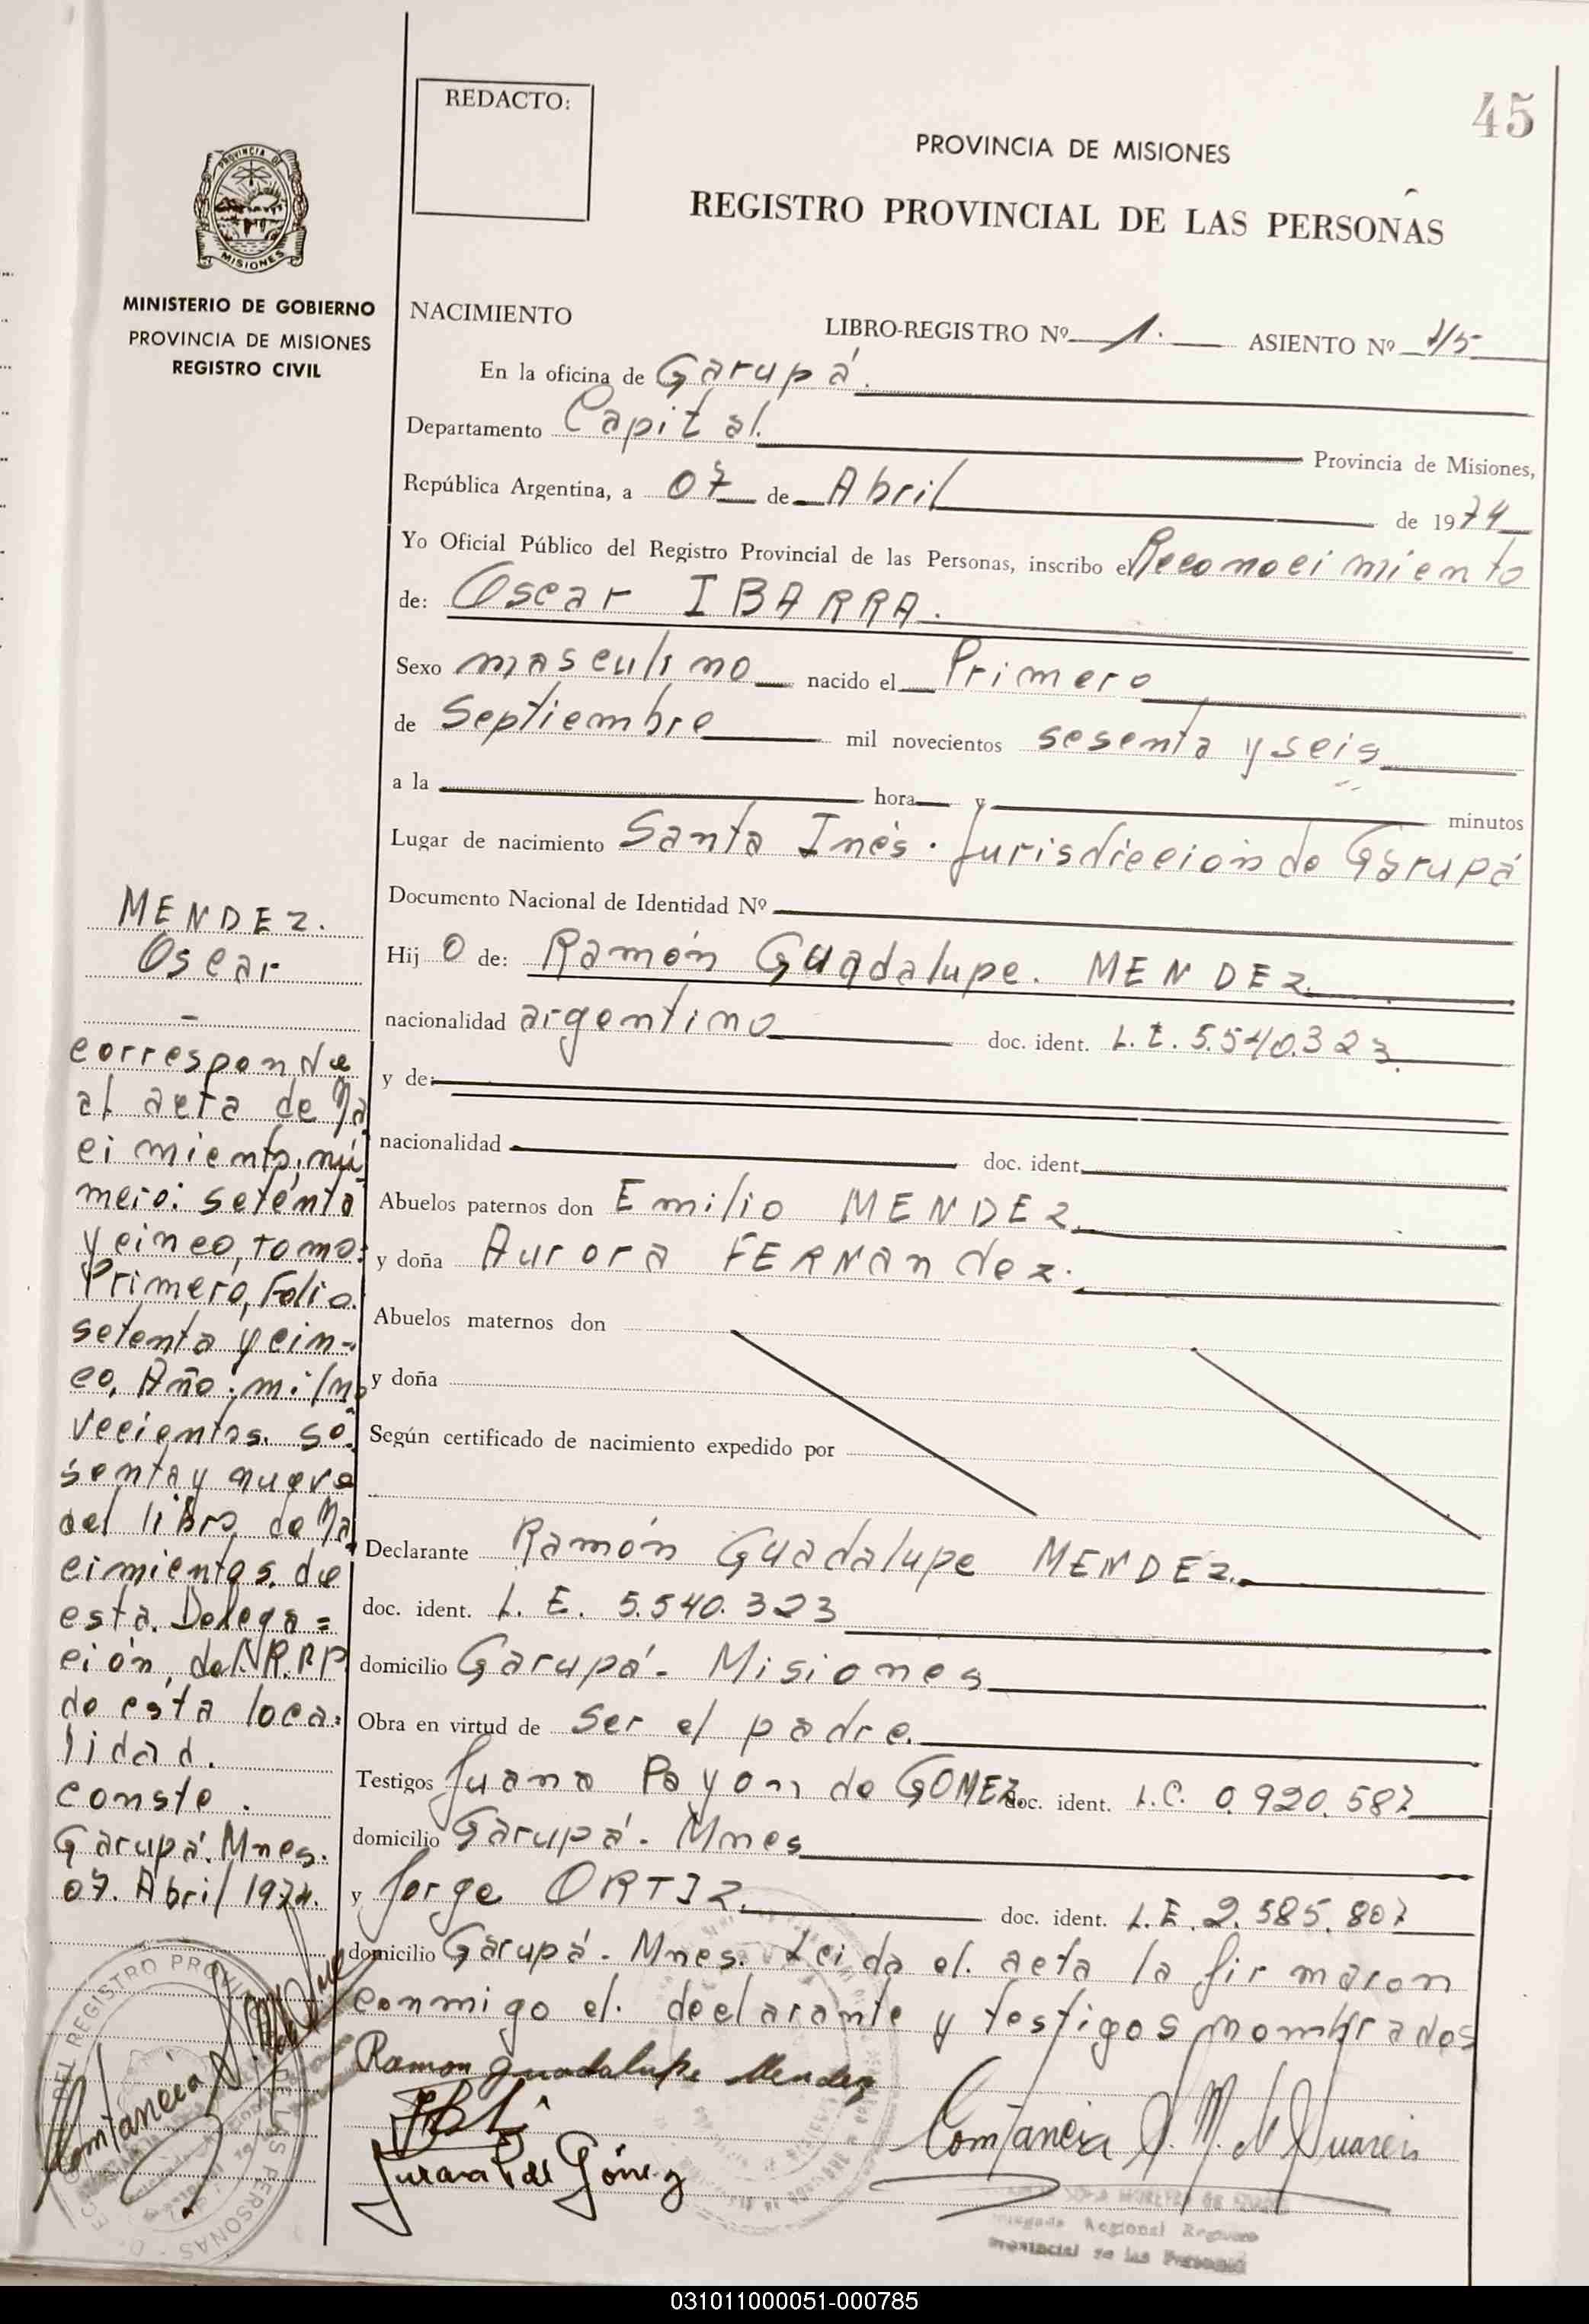 REDACTO:
45
PROVINCIA DE MISIONES
REGISTRO PROVINCIAL DE LAS PERSONAS
PROVINCIA DE
MISIONES
MINISTERIO DE GOBIERNO
PROVINCIA DE MISIONES
REGISTRO CIVIL
NACIMIENTO
LIBRO-REGISTRO Nº 1. ASIENTO Nº 45
En la oficina de Garupá.
Departamento Capital. Provincia de Misiones,
República Argentina, a 07 de Abril de 1974
Yo Oficial Público del Registro Provincial de las Personas, inscribo el Reconocimiento
de: Oscar IBARRA.
Sexo masculino nacido el Primero
de Septiembre mil novecientos sesenta y seis
a la hora y minutos
Lugar de nacimiento Santa Inés. Jurisdicción de Garupá
Documento Nacional de Identidad Nº
Hij o de: Ramón Guadalupe. MENDEZ
nacionalidad argentino doc. ident. L.E. 5.540.323.
y de:
nacionalidad doc. ident.
Abuelos paternos don Emilio MENDEZ.
y doña Aurora FERNandez.
Abuelos maternos don
y doña
Según certificado de nacimiento expedido por
Declarante Ramón Guadalupe MENDEZ.
doc. ident. L. E. 5.540.323
domicilio Garupá - Misiones
Obra en virtud de ser el padre.
Testigos Juana Payon de GOMEZ. doc. ident. L.C. 0.920.587
domicilio Garupá - Mnes
y Jorge ORTIZ. doc. ident. L.E. 2.585.807
domicilio Garupá - Mnes. Leida el. acta la firmaron
conmigo el. declarante y testigos nombrados
Ramon Guadalupe Mendez
Juana P de Gómez
MENDEZ.
Oscar
-
corresponde
al acta de Na
cimiento, nú
mero: setenta
y cinco, tomo:
Primero, Folio.
setenta y cin-
co, Año: mil no
vecientos. se.
senta y nueve
del libro de Na
cimientos. de
esta. Delega=
ción, del R.P.P
de esta loca=
lidad.
conste.
Garupá. Mnes.
07. Abril 1974.
Delegada Regional Registro
Provincial de las Personas
031011000051-000785